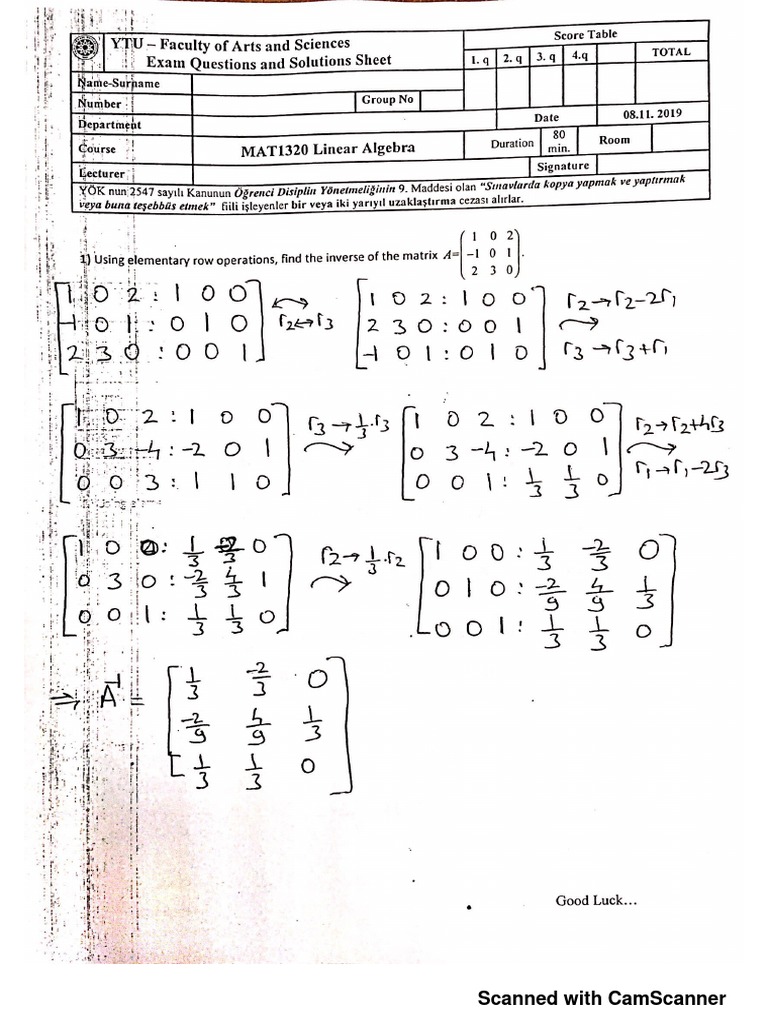 YTU – Faculty of Arts and Sciences
Exam Questions and Solutions Sheet
Score Table
1. q 2. q 3. q 4.q TOTAL
Name-Surname
Number Group No
Department Date 08.11. 2019
Course MAT1320 Linear Algebra Duration 80 min. Room
Lecturer Signature
YÖK nun 2547 sayılı Kanunun Öğrenci Disiplin Yönetmeliğinin 9. Maddesi olan "Sınavlarda kopya yapmak ve yaptırmak
veya buna teşebbüs etmek" fiili işleyenler bir veya iki yarıyıl uzaklaştırma cezası alırlar.
1) Using elementary row operations, find the inverse of the matrix A= ( 1 0 2
-1 0 1
2 3 0 ).
1 0 2 : 1 0 0 ↔ 1 0 2 : 1 0 0 r2→r2-2r1
-1 0 1 : 0 1 0 r2↔r3 2 3 0 : 0 0 1
2 3 0 : 0 0 1 -1 0 1 : 0 1 0 r3→r3+r1
1 0 2 : 1 0 0 r3→1/3.r3 1 0 2 : 1 0 0 r2→r2+4r3
0 3 -4 : -2 0 1 0 3 -4 : -2 0 1
0 0 3 : 1 1 0 0 0 1 : 1/3 1/3 0 r1→r1-2r3
1 0 0 : 1/3 -2/3 0 r2→1/3.r2 1 0 0 : 1/3 -2/3 0
0 3 0 : -2/3 4/3 1 0 1 0 : -2/9 4/9 1/3
0 0 1 : 1/3 1/3 0 0 0 1 : 1/3 1/3 0
⇒ A⁻¹ = [ 1/3 -2/3 0
-2/9 4/9 1/3
1/3 1/3 0 ]
Good Luck...
Scanned with CamScanner